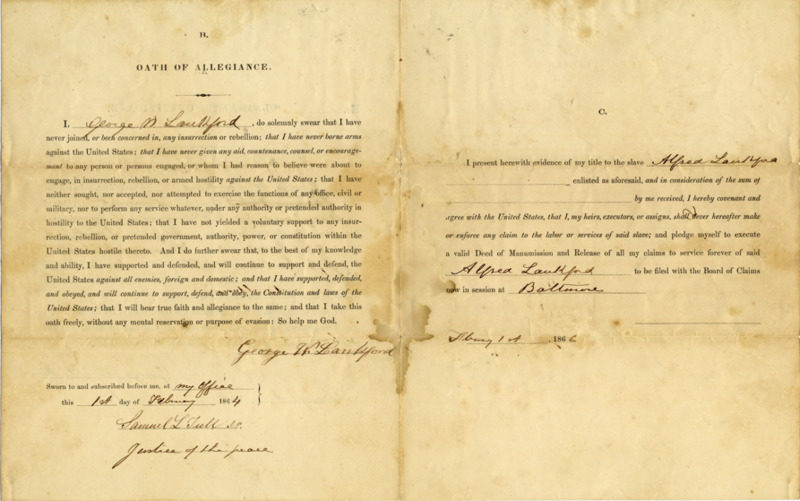 B.
OATH OF ALLEGIANCE.
I, George W Lankford, do solemnly swear that I have
never joined, or been concerned in, any insurrection or rebellion; that I have never borne arms
against the United States; that I have never given any aid, countenance, counsel, or encourage-
ment to any person or persons engaged, or whom I had reason to believe were about to
engage, in insurrection, rebellion, or armed hostility against the United States; that I have
neither sought, nor accepted, nor attempted to exercise the functions of any office, civil or
military, nor to perform any service whatever, under any authority or pretended authority in
hostility to the United States; that I have not yielded a voluntary support to any insur-
rection, rebellion, or pretended government, authority, power, or constitution within the
United States hostile thereto. And I do further swear that, to the best of my knowledge
and ability, I have supported and defended, and will continue to support and defend, the
United States against all enemies, foreign and domestic; and that I have supported, defended,
and obeyed, and will continue to support, defend, and obey, the Constitution and laws of the
United States; that I will bear true faith and allegiance to the same; and that I take this
oath freely, without any mental reservation or purpose of evasion: So help me God.
George W Lankford
Sworn to and subscribed before me, at my office
this 1st day of February 1864
Samuel L
Justice of the peace
C.
I present herewith evidence of my title to the slave Alfred Lankford
enlisted as aforesaid, and in consideration of the sum of
by me received, I hereby covenant and
agree with the United States, that I, my heirs, executors, or assigns, shall never hereafter make
or enforce any claim to the labor or services of said slave; and pledge myself to execute
a valid Deed of Manumission and Release of all my claims to service forever of said
Alfred Lankford to be filed with the Board of Claims
now in session at Baltimore
1st 186